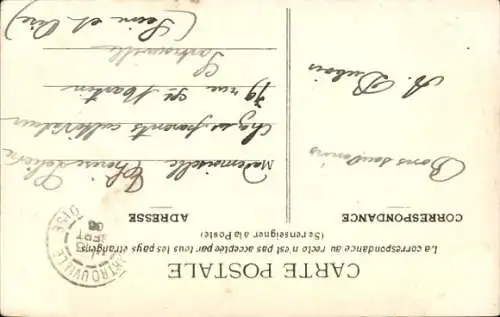 CARTE POSTALE
La correspondance au recto n'est pas acceptée par tous les pays étrangers
(Se renseigner à la Poste)
CORRESPONDANCE
ADRESSE
Bons souvenirs
A. Dubois
Mademoiselle
chez ses parents cultivateur
79 rue St Martin
Sartrouville
(Seine et Oise)
SARTROUVILLE
OISE